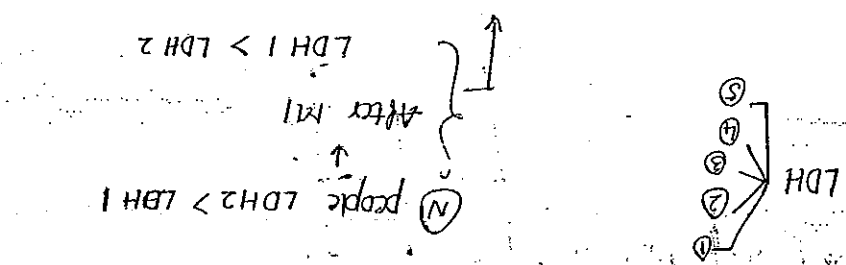 LDH
①
②
③
④
⑤
Ⓝ people LDH2 > LDH 1
After MI
LDH 1 > LDH 2